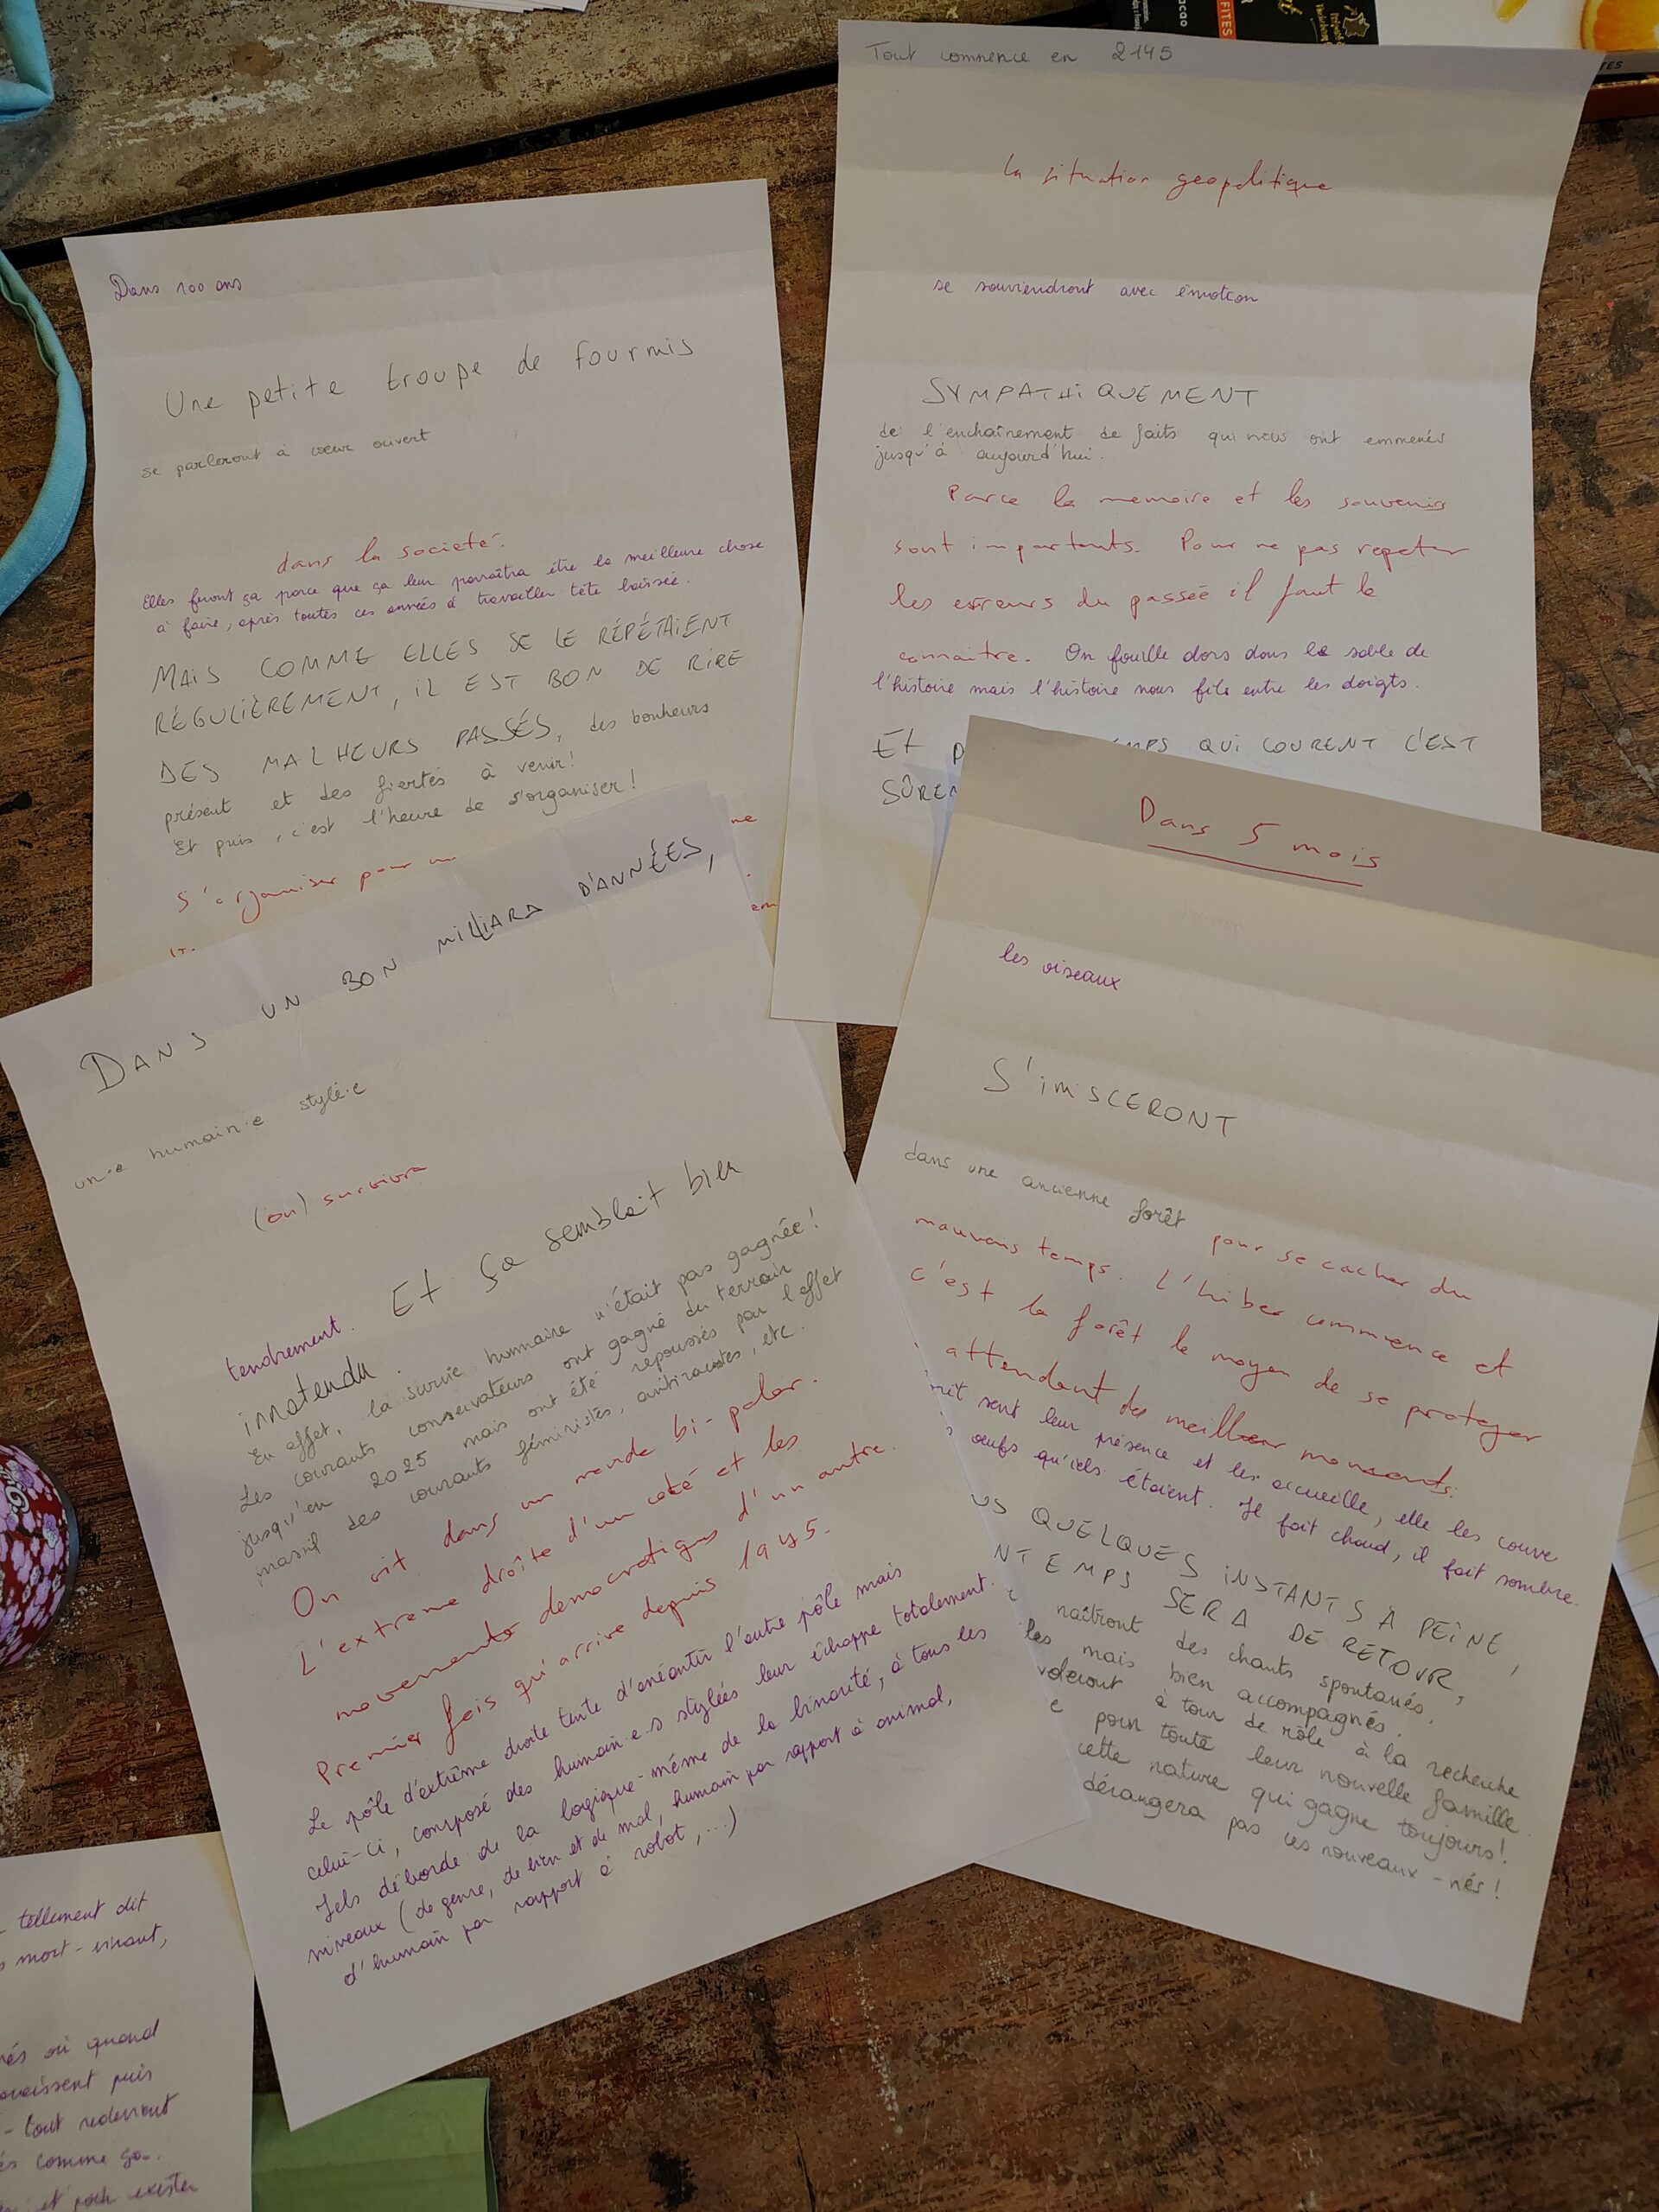 Dans 100 ans
Une petite troupe de fourmis
se parleront à cœur ouvert
dans la societé.
Elles feront ça parce que ça leur paraîtra être la meilleure chose
à faire, après toutes ces années à travailler tête baissée.
MAIS COMME ELLES SE LE RÉPÉTAIENT
RÉGULIÈREMENT, iL EST BON DE RIRE
DES MALHEURS PASSÉS, des bonheurs
présent et des fiertés à venir!
Et puis, c'est l'heure de s'organiser!
S'organiser pour
Tout commence en 2145
la situation geopolitique
se souviendront avec émotion
SYMPATHiQUEMENT
de l'enchaînement de faits qui nous ont emmenés
jusqu'à aujourd'hui.
Parce la memoire et les souvenirs
sont importants. Pour ne pas repeter
les erreurs du passée il faut le
connaitre. On fouille alors dans le sable de
l'histoire mais l'histoire nous file entre les doigts.
Et QUI COURENT C'EST
DANS UN BON MILLIARD D'ANNÉES,
un·e humain·e stylé·e
(ou) survivra
tendrement. Et ça semblait bien
innatendu.
En effet, la survie humaine n'était pas gagnée!
Les courants conservateurs ont gagné du terrain
jusqu'en 2025 mais ont été repoussés par l'effet
massif des courants féministes, antiracistes, etc.
On vit dans un monde bi-polar.
L'extreme droite d'un coté et les
movements democratiques d'un autre.
Premier fois qui arrive depuis 1945.
Le pôle d'extrême droite tente d'anéantir l'autre pôle mais
celui-ci, composé des humain·e·s stylées leur échappe totalement.
Iels déborde de la logique-même de la binarité, à tous les
niveaux (de genre, de bien et de mal, humain par rapport à animal,
d'humain par rapport à robot,...)
Dans 5 mois
les oiseaux
S'iMISCERONT
dans une ancienne forêt pour se cacher du
mauvais temps. L'hiber commence et
c'est la forêt le moyen de se proteger
attendant de meilleur moments.
sent leur présence et les accueille, elle les couve
œufs qu'iels étaient. Il fait chaud, il fait sombre.
QUELQUES iNSTANTS À PEiNE,
TEMPS SERA DE RETOUR,
naîtront des chants spontanés.
mais bien accompagnés.
à tour de rôle à la recherche
pour toute leur nouvelle famille.
cette nature qui gagne toujours!
dérangera pas ces nouveaux-nés!
tellement dit
mort-vivant,
où quand
puis
tout
comme
et exister